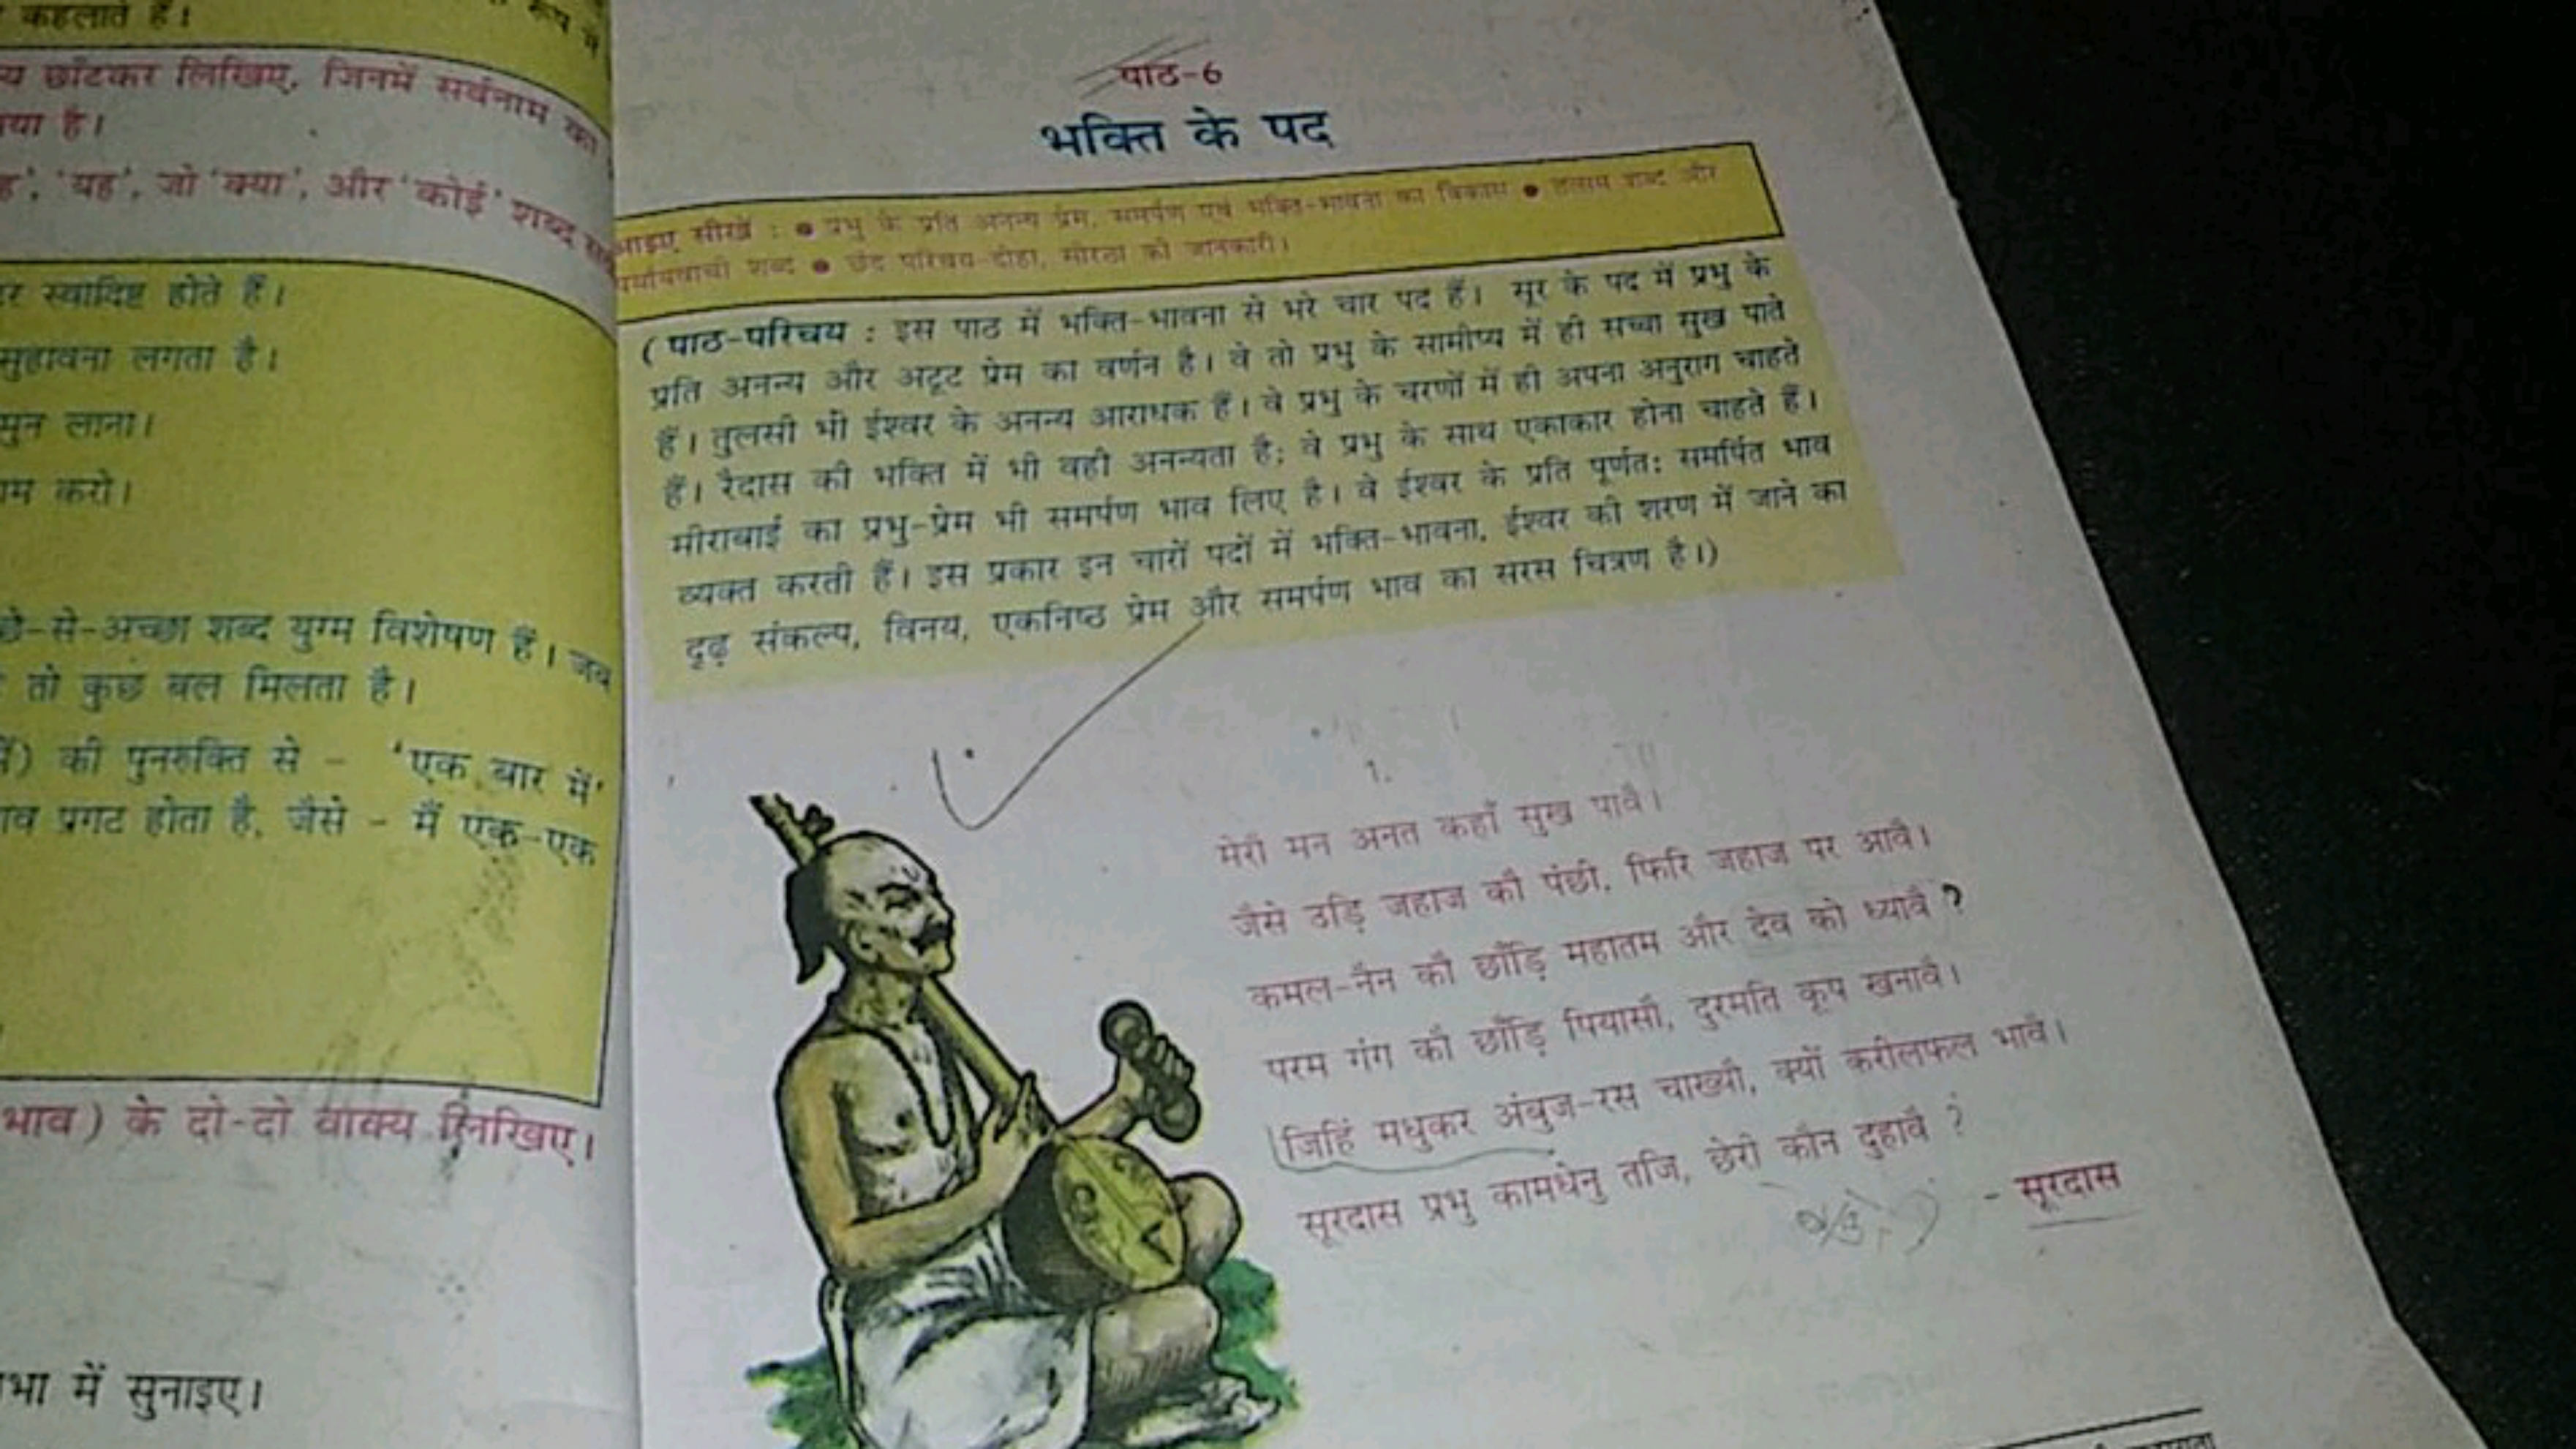 कहलाते हैं।
रूप में
छाँटकर लिखिए, जिनमें सर्वनाम का
है।
'यह', जो 'क्या', और 'कोई' शब्द
स्वादिष्ट होते हैं।
सुहावना लगता है।
सुन लाना।
करो।
से-अच्छा शब्द युग्म विशेषण हैं। जब
तो कुछ बल मिलता है।
की पुनरुक्ति से - 'एक बार में'
प्रगट होता है, जैसे - मैं एक-एक
भाव) के दो-दो वाक्य लिखिए।
में सुनाइए।
पाठ-6
भक्ति के पद
आइए सीखें : ● प्रभु के प्रति अनन्य प्रेम, समर्पण एवं भक्ति-भावना का विकास ● शब्द और
पर्यायवाची शब्द ● छंद परिचय-दोहा, सोरठा की जानकारी।
(पाठ-परिचय : इस पाठ में भक्ति-भावना से भरे चार पद हैं। सूर के पद में प्रभु के
प्रति अनन्य और अटूट प्रेम का वर्णन है। वे तो प्रभु के सामीप्य में ही सच्चा सुख पाते
हैं। तुलसी भी ईश्वर के अनन्य आराधक हैं। वे प्रभु के चरणों में ही अपना अनुराग चाहते
हैं। रैदास की भक्ति में भी वही अनन्यता है; वे प्रभु के साथ एकाकार होना चाहते हैं।
मीराबाई का प्रभु-प्रेम भी समर्पण भाव लिए है। वे ईश्वर के प्रति पूर्णतः समर्पित भाव
व्यक्त करती हैं। इस प्रकार इन चारों पदों में भक्ति-भावना, ईश्वर की शरण में जाने का
दृढ़ संकल्प, विनय, एकनिष्ठ प्रेम और समर्पण भाव का सरस चित्रण है।)
1.
मेरौ मन अनत कहाँ सुख पावै।
जैसे उड़ि जहाज कौ पंछी, फिरि जहाज पर आवै।
कमल-नैन कौ छाँड़ि महातम और देव को ध्यावै ?
परम गंग कौ छाँड़ि पियासौ, दुरमति कूप खनावै।
जिहिं मधुकर अंबुज-रस चाख्यौ, क्यों करीलफल भावै।
सूरदास प्रभु कामधेनु तजि, छेरी कौन दुहावै ?
- सूरदास